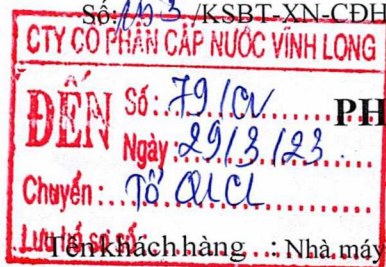 Số: /KSBT-XN-CĐH
CTY CỔ PHẦN CẤP NƯỚC VĨNH LONG
ĐẾN Số: 79/CV PH
Ngày: 29/3/23
Chuyển: Tổ QLCL
Lưu hồ sơ số:
Tên khách hàng : Nhà máy